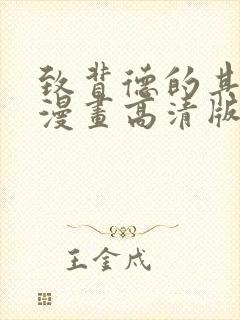 致背德的其
漫畫高清版
王金戍